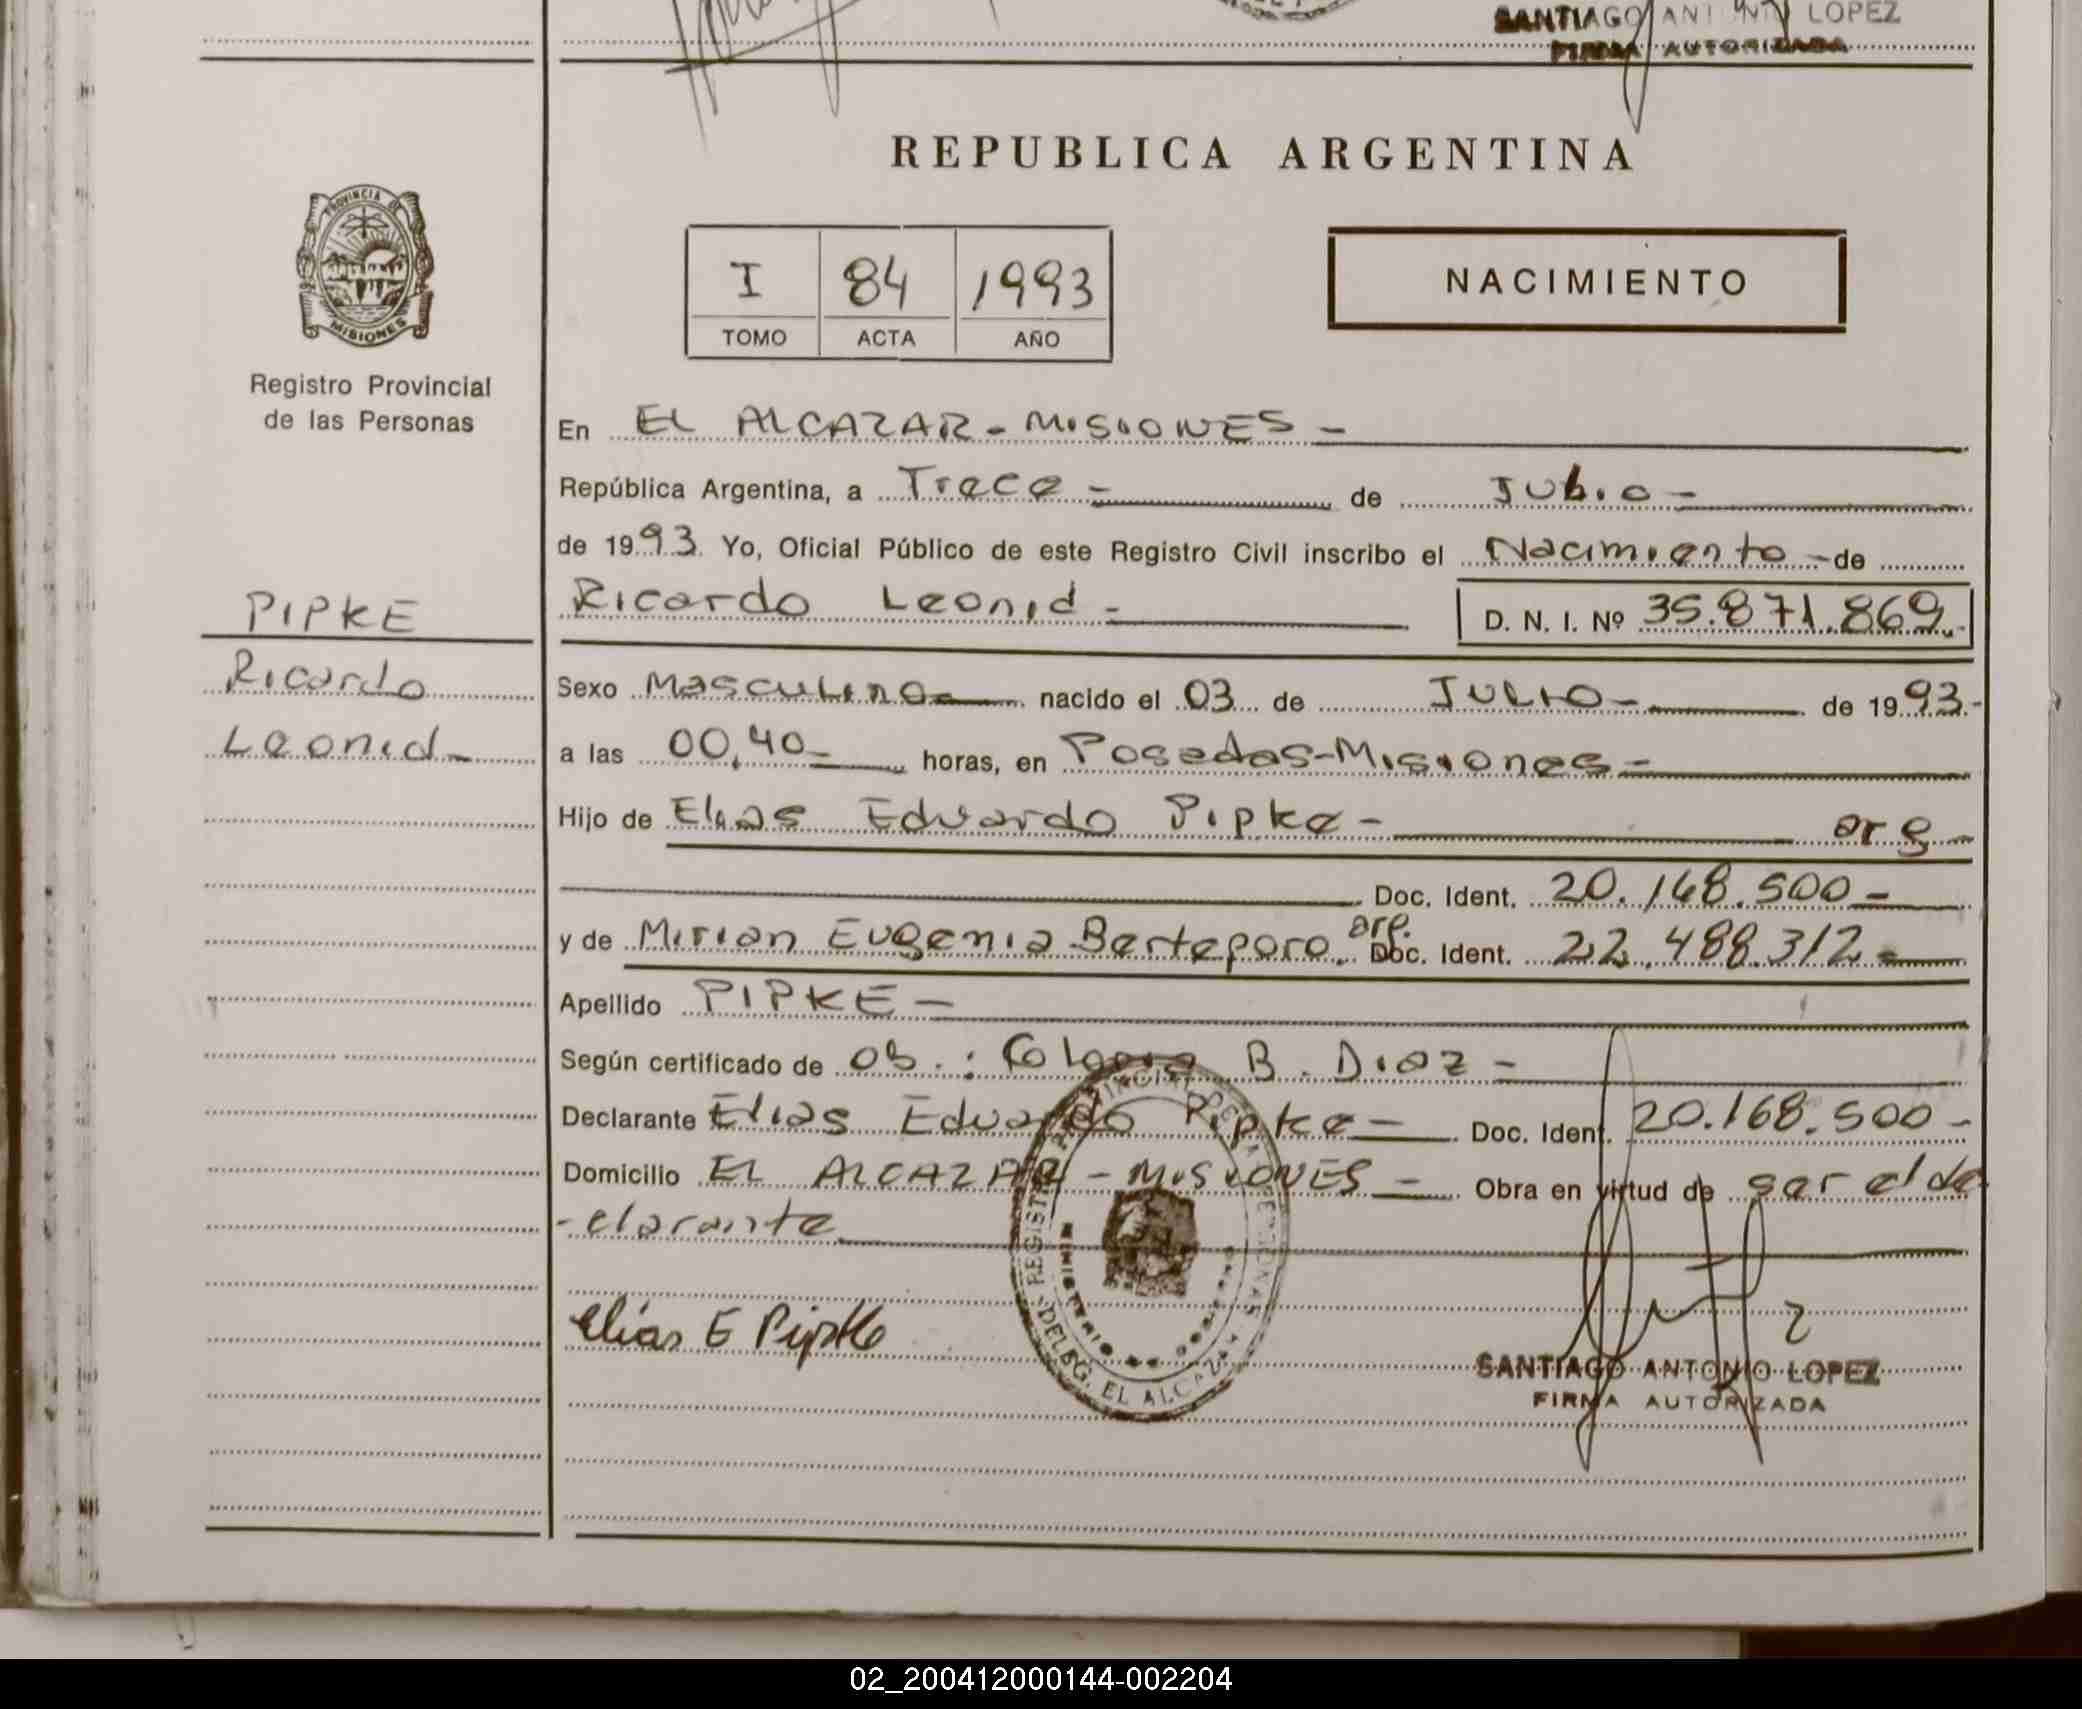 SANTIAGO ANTONIO LOPEZ
FIRMA AUTORIZADA
REPUBLICA ARGENTINA
PROVINCIA DE
MISIONES
I 84 1993
TOMO ACTA AÑO
NACIMIENTO
Registro Provincial
de las Personas
En EL ALCAZAR - MISIONES -
República Argentina, a Trece - de Julio -
de 1993. Yo, Oficial Público de este Registro Civil inscribo el Nacimiento - de
PIPKE
Ricardo
Leonid -
Ricardo Leonid - D. N. I. Nº 35.871.869.-
Sexo Masculino - nacido el 03 de JULIO - de 1993.-
a las 00,40 - horas, en Posadas - Misiones -
Hijo de Elias Eduardo Pipke - arg -
Doc. Ident. 20.168.500 -
y de Mirian Eugenia Berteporo. arg. Doc. Ident. 22.488.312 -
Apellido PIPKE -
Según certificado de Ob.: B. Diaz -
Declarante Elias Eduardo Pipke - Doc. Ident. 20.168.500 -
Domicilio EL ALCAZAR - MISIONES - Obra en virtud de ser el de
- clarante
Elias E Pipke
REGISTRO PROVINCIAL DE LAS PERSONAS
MINISTERIO
DELEG. EL ALCAZAR
SANTIAGO ANTONIO LOPEZ
FIRMA AUTORIZADA
02_200412000144-002204